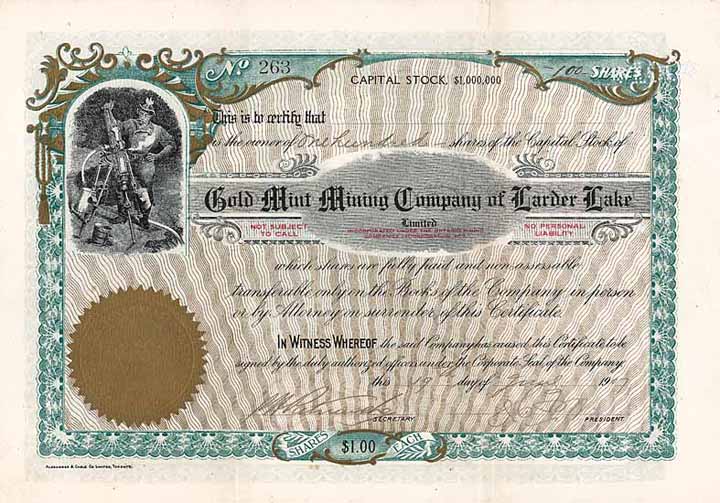 No 263
CAPITAL STOCK, $1,000,000
100 SHARES
This is to certify that
is the owner of One hundred shares of the Capital Stock of
Gold Mint Mining Company of Larder Lake
Limited
NOT SUBJECT TO CALL
INCORPORATED UNDER THE ONTARIO MINING COMPANIES INCORPORATION ACT
NO PERSONAL LIABILITY
which shares are fully paid and non-assessable
transferable only on the Books of the Company in person
or by Attorney on surrender of this Certificate.
IN WITNESS WHEREOF the said Company has caused this Certificate to be
signed by the duly authorized officers under the Corporate Seal of the Company
this 19 day of June 1907
SECRETARY. PRESIDENT.
SHARES $1.00 EACH
ALEXANDER & CABLE CO LIMITED, TORONTO.